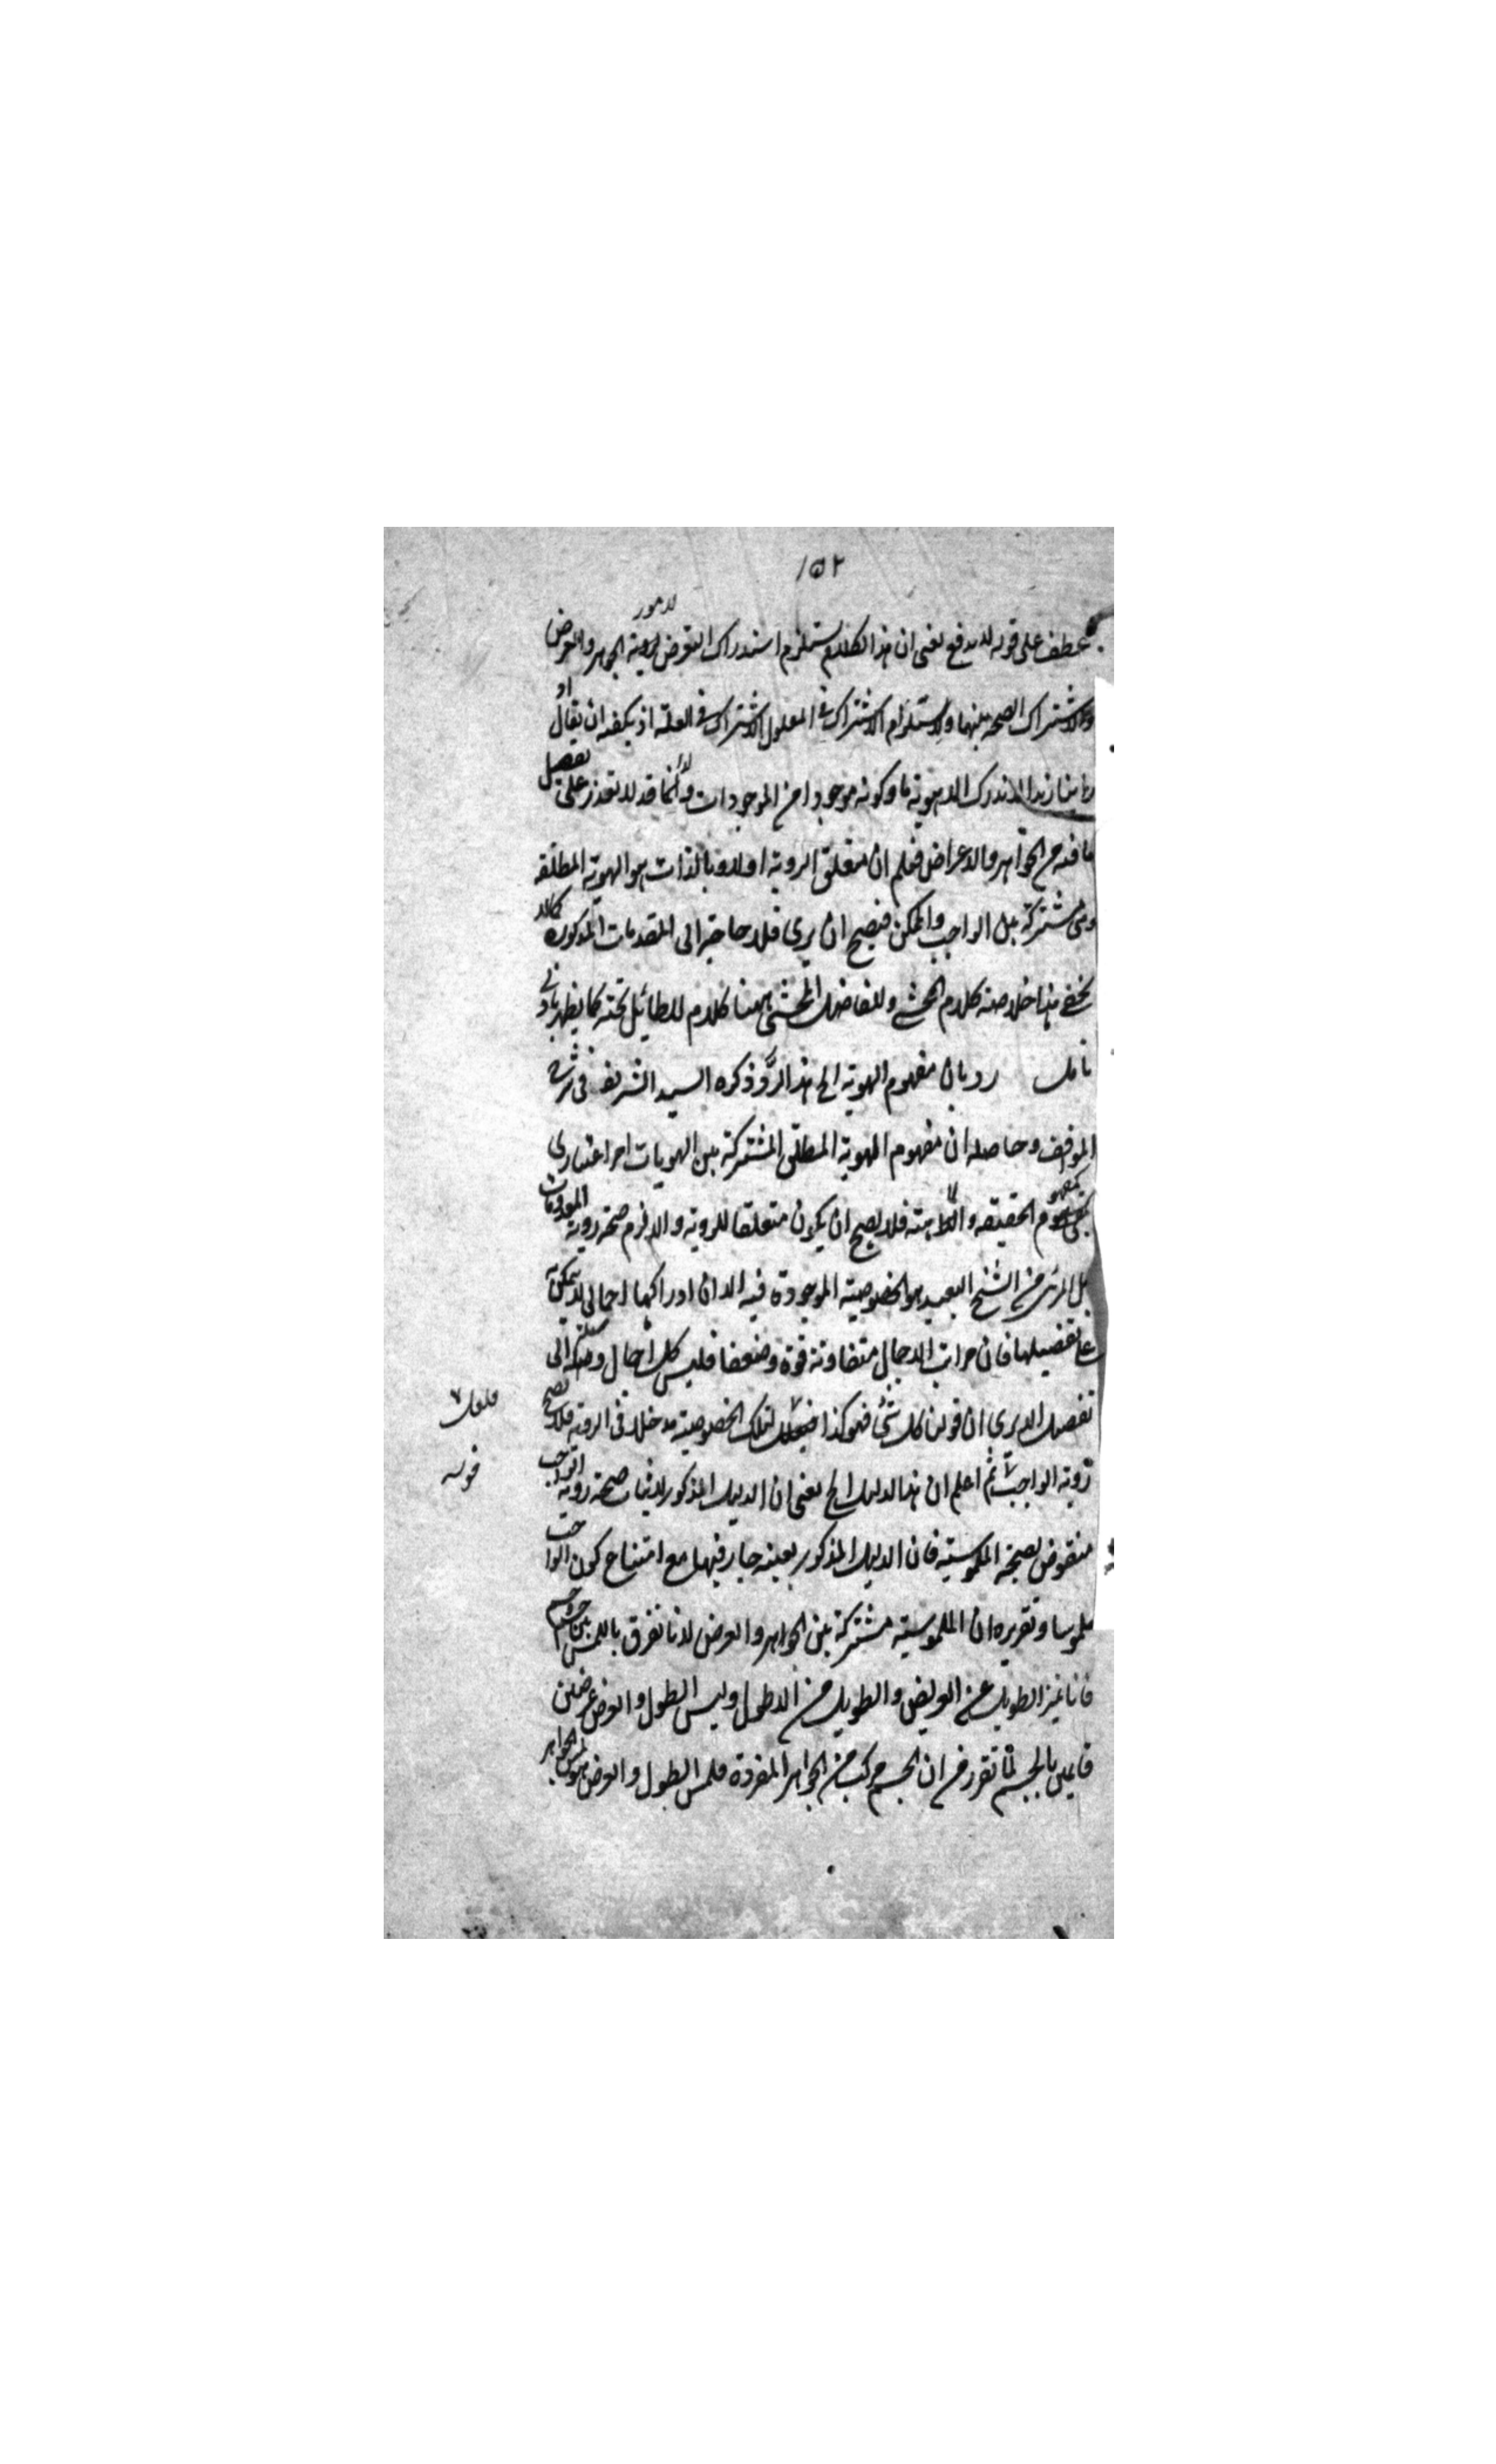 ١٥٢
لامور
عطف على قوله لا يدفع يعنى ان هذا الكلام يستلزم استدراك التعرض لرؤية الجوهر والعرض
والاشتراك الصحة بينهما ولاستلزام الاشتراك فى المعلول الاشتراك فى العلة اذ يكفيه ان يقال اذ
راينا زيدا لا ندرك الا هوية ما وكونه موجودا من الموجودات وانما قد لا نقدر على تفصيل
ما فيه من الجواهر والاعراض فعلم ان متعلق الروية اولا وبالذات هو الهوية المطلقة
وهى مشتركة بين الواجب والممكن فيصح ان يرى فلا حاجة الى المقدمات المذكورة كما لا
يخفى هذا خلاصة كلام المحشى وللفاضل المحشى ههنا كلام لا طائل تحته كما يظهر بادنى
تامل رد بان مفهوم الهوية الخ هذا الرد ذكره السيد الشريف فى شرح
المواقف وحاصله ان مفهوم الهوية المطلق المشتركة بين الهويات امر اعتبارى
كمفهوم الحقيقة والماهية فلا يصح ان يكون متعلقا للروية والا لزم صحة روية المعدومات
بل المرئى من الشبح البعيد هو الخصوصية الموجودة فيه الا ان ادراكها اجمالى لا يتمكن به
على تفصيلها فان مراتب الاجمال متفاوتة قوة وضعفا فليس كل اجمال وسيلة الى
تفصيل الا يرى ان قولنا كل شئ فهو كذا لتلك الخصوصية مدخلا فى الروية فلا يصح
روية الواجب ثم اعلم ان هذا الدليل الخ يعنى ان الدليل المذكور لاثبات صحة روية الواجب
منقوض بصحة الملموسية فان الدليل المذكور بعينه جار فيها مع امتناع كون الواجب
ملموسا وتقريره ان الملموسية مشتركة بين الجواهر والعرض لانا نفرق باللمس بين جسم وجسم
فانا نميز الطويل عن العريض والطويل من الاطول وليس الطول والعرض عرضين
قائمين بالجسم لما تقرر من ان الجسم مركب من الجواهر المفردة فلمس الطول والعرض هو لمس الجواهر
فلعل
قوله